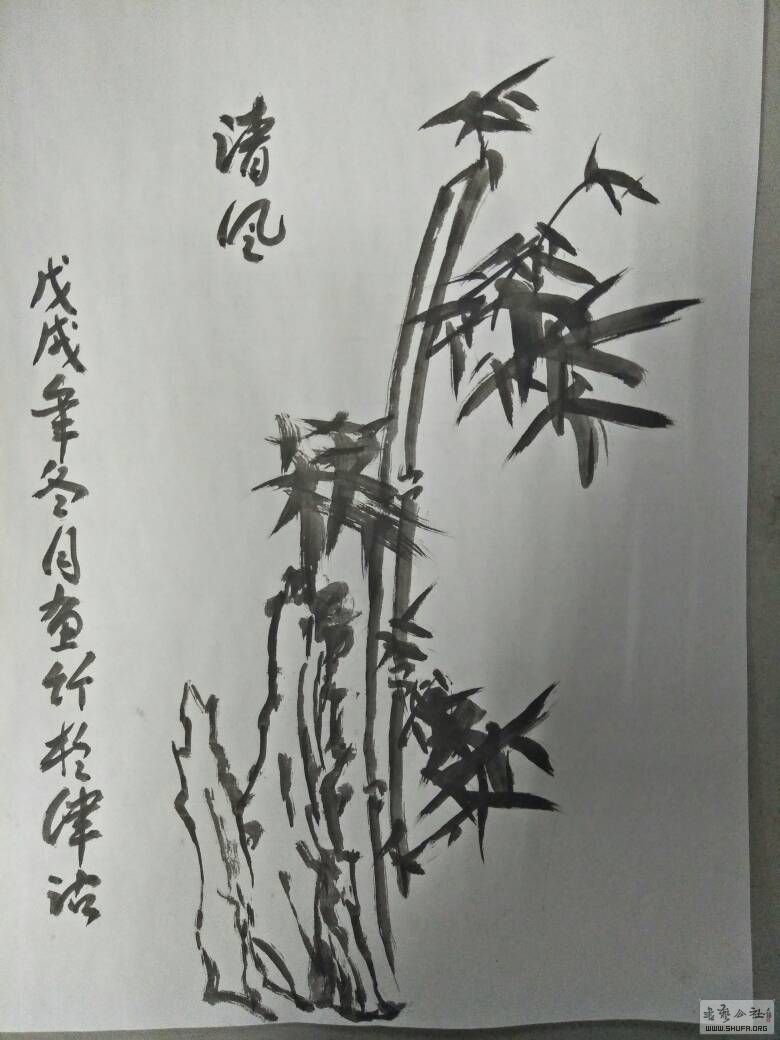 清风
戊戌年冬月画竹於津沽
书艺公社
WWW.SHUFA.ORG